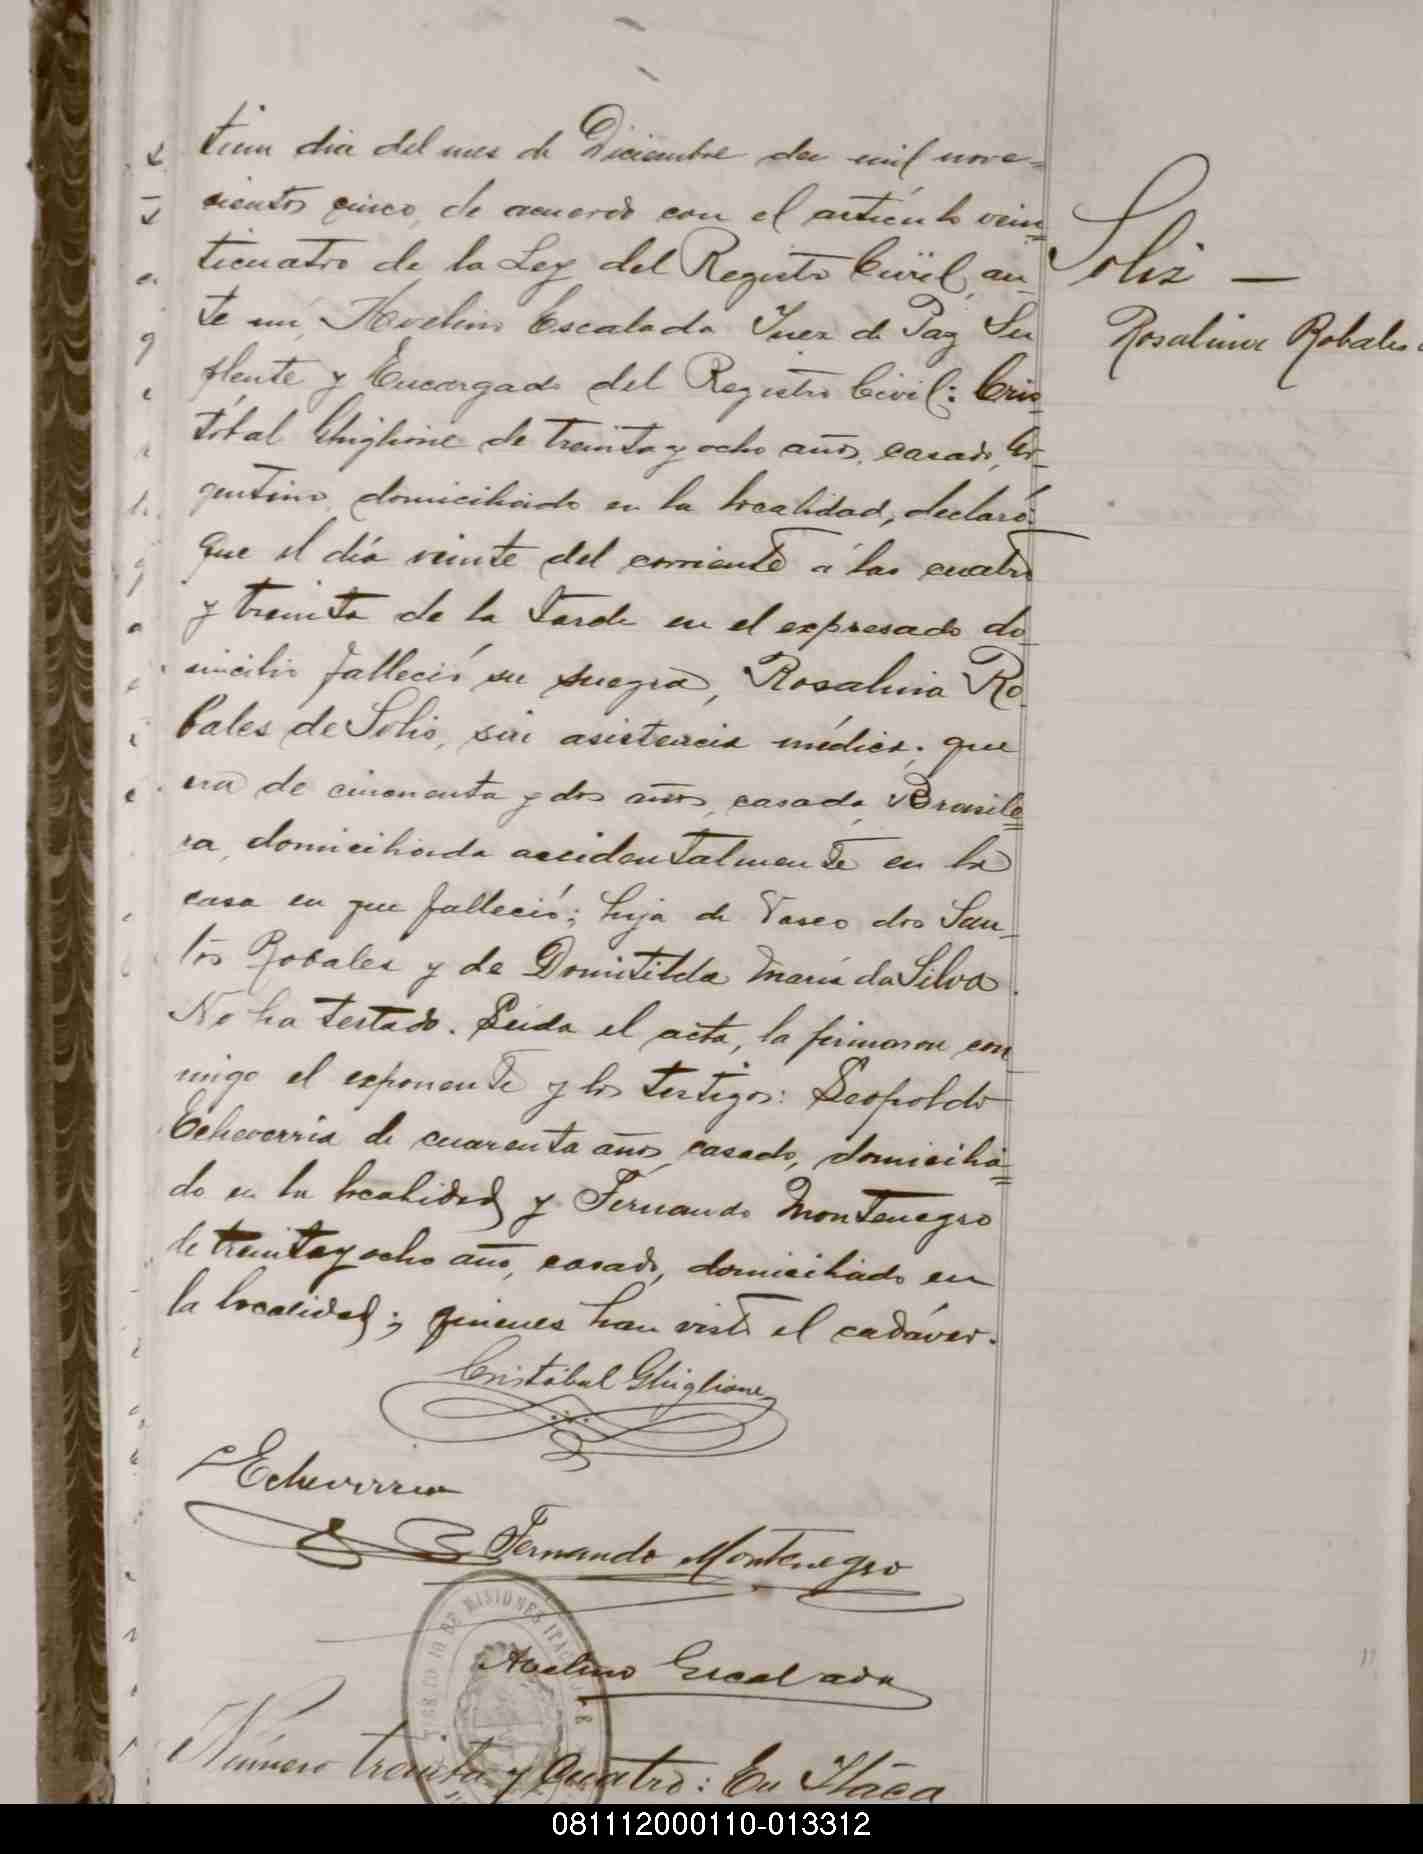 tiun dia del mes de Diciembre de mil nove=
cientos cinco, de acuerdo con el artículo vein=
ticuatro de la Ley del Registro Civil, an-
te mi, Avelino Escalada Juez de Paz Su
plente y Encargado del Registro Civil: Cris-
tóbal Ghiglione de treinta y ocho años, casado, Ar-
gentino, domiciliado en la localidad, declaró:
Que el día veinte del corriente á las cuatro
y treinta de la tarde en el expresado do-
micilio falleció su suegra, Rosalina Ro-
bales de Solis, sin asistencia médica; que
era de cincuenta y dos años, casada, Brasile=
ra, domiciliada accidentalmente en la
casa en que falleció; hija de Vasco dos San-
tos Robales y de Domitilda María da Silva.
No ha testado. Leida el acta, la firmaron con
migo el exponente y los testigos: Leopoldo
Echeverria de cuarenta años, casado, domicilia=
do en la localidad y Fernando Montenegro
de treinta y ocho año, casado, domiciliado en
la localidad; quienes han visto el cadáver.
Cristóbal Ghiglione
L Echeverria
Fernando Montenegro
TERRITORIO DE MISIONES
Avelino Escalada
Número treinta y cuatro: En Itáca
Soliz —
Rosalina Robales
081112000110-013312